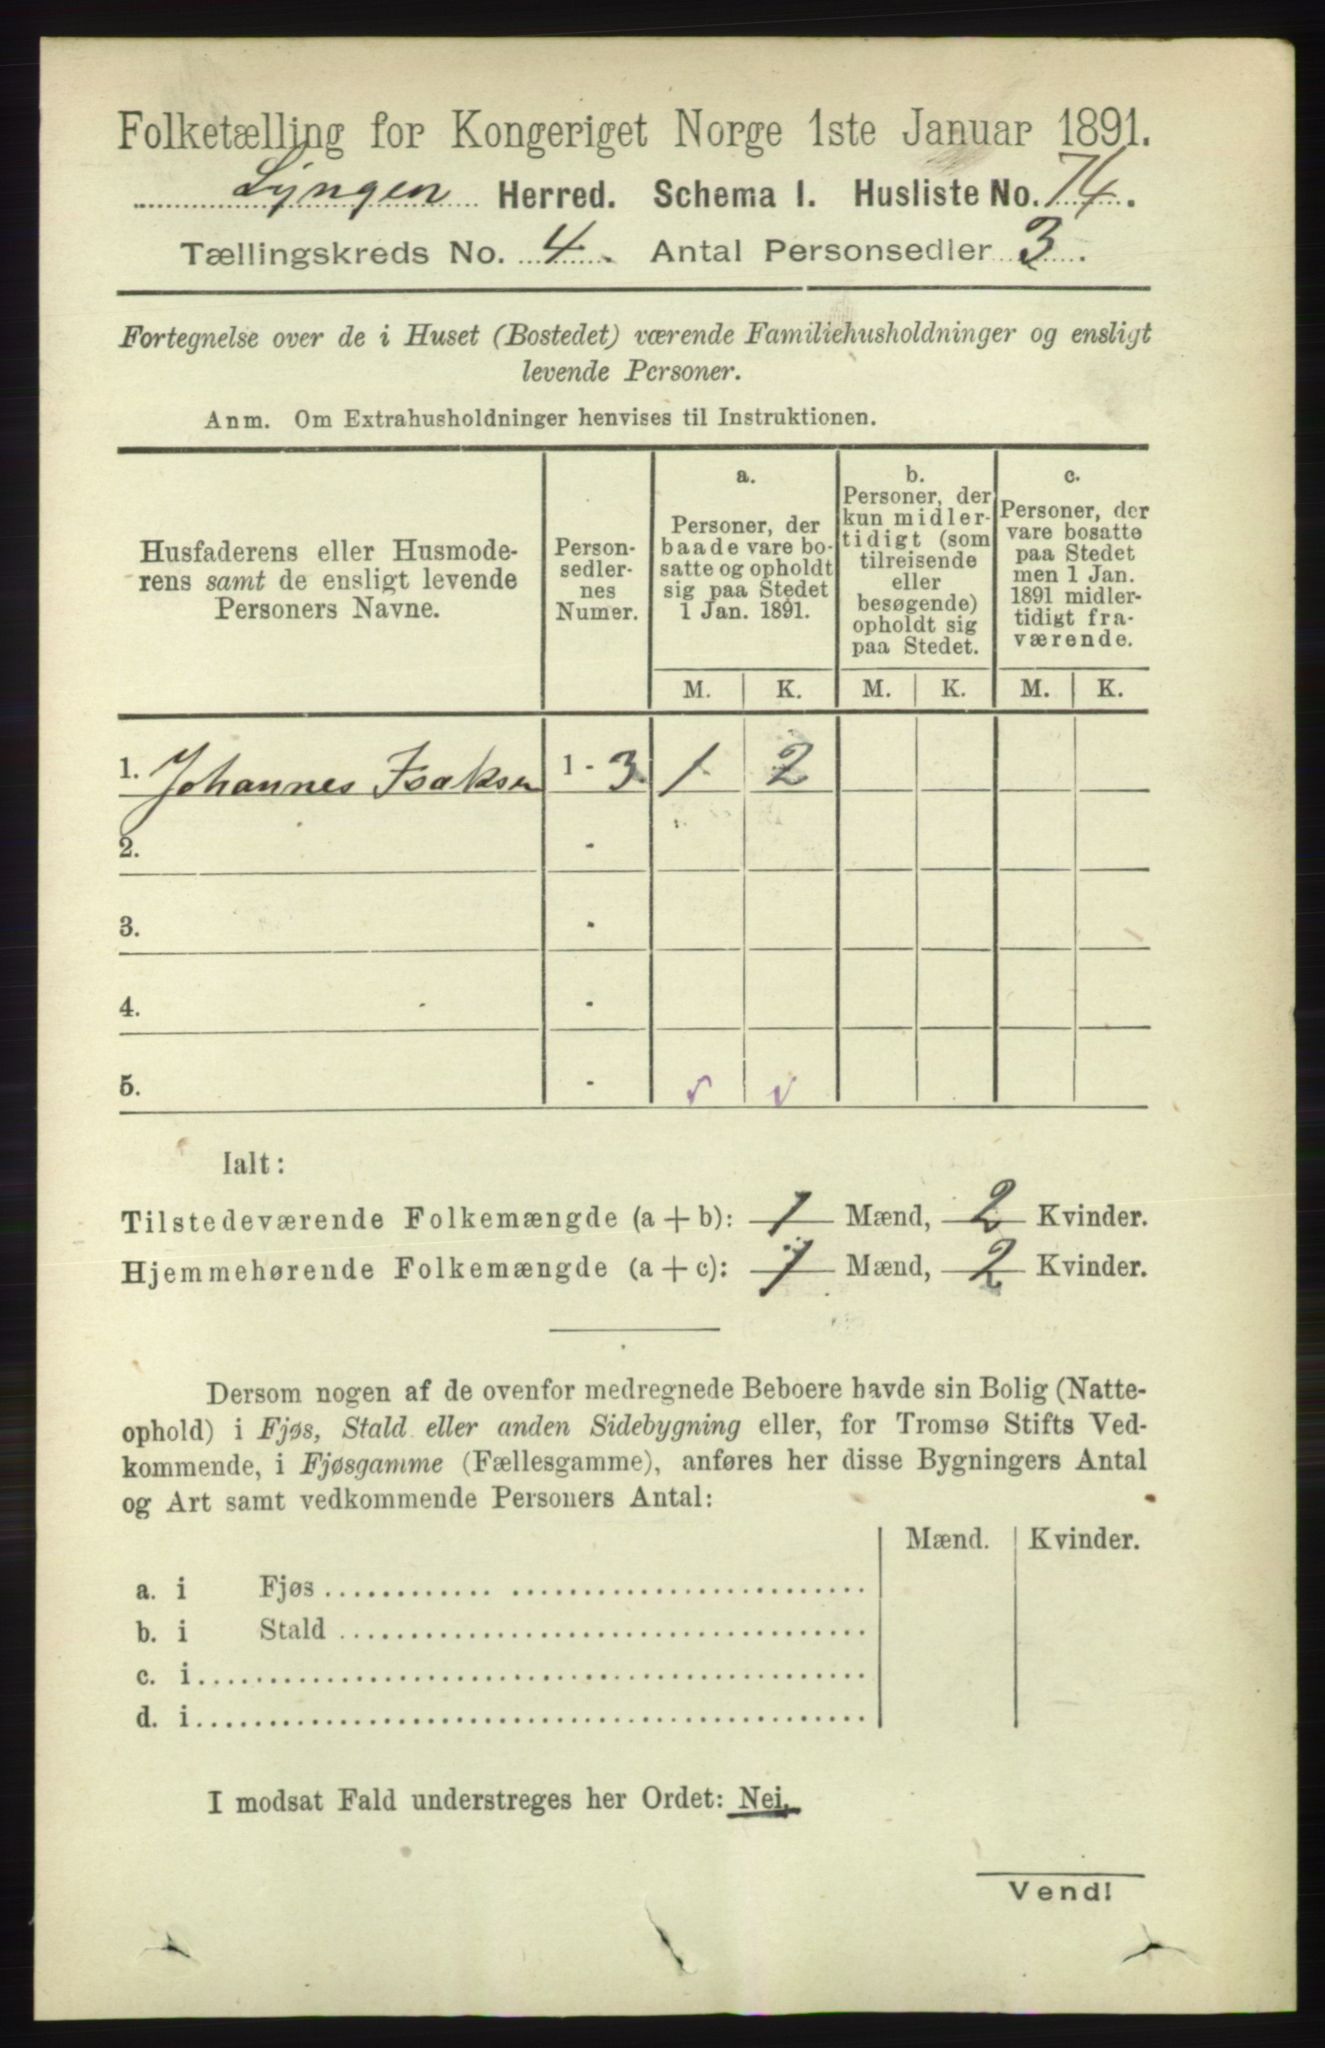 Folketælling for Kongeriget Norge 1ste Januar 1891.
Lyngen Herred. Schema I. Husliste No. 74.
Tællingskreds No. 4. Antal Personsedler 3.
Fortegnelse over de i Huset (Bostedet) værende Familiehusholdninger og ensligt
levende Personer.
Anm. Om Extrahusholdninger henvises til Instruktionen.
Husfaderens eller Husmode-
rens samt de ensligt levende
Personers Navne.
Person-
sedler-
nes
Numer.
a.
Personer, der
baade vare bo-
satte og opholdt
sig paa Stedet
1 Jan. 1891.
b.
Personer, der
kun midler-
tidigt (som
tilreisende
eller
besøgende)
opholdt sig
paa Stedet.
c.
Personer, der
vare bosatte
paa Stedet
men 1 Jan.
1891 midler-
tidigt fra-
værende.
M. K. M. K. M. K.
1. Johannes Isaksen 1 - 3 1 2
2. -
3. -
4. -
5. -
Ialt:
Tilstedeværende Folkemængde (a + b): 1 Mænd, 2 Kvinder.
Hjemmehørende Folkemængde (a + c): 1 Mænd, 2 Kvinder.
Dersom nogen af de ovenfor medregnede Beboere havde sin Bolig (Natte-
ophold) i Fjøs, Stald eller anden Sidebygning eller, for Tromsø Stifts Ved-
kommende, i Fjøsgamme (Fællesgamme), anføres her disse Bygningers Antal
og Art samt vedkommende Personers Antal:
Mænd. Kvinder.
a. i Fjøs
b. i Stald
c. i
d. i
I modsat Fald understreges her Ordet: Nei.
Vend!